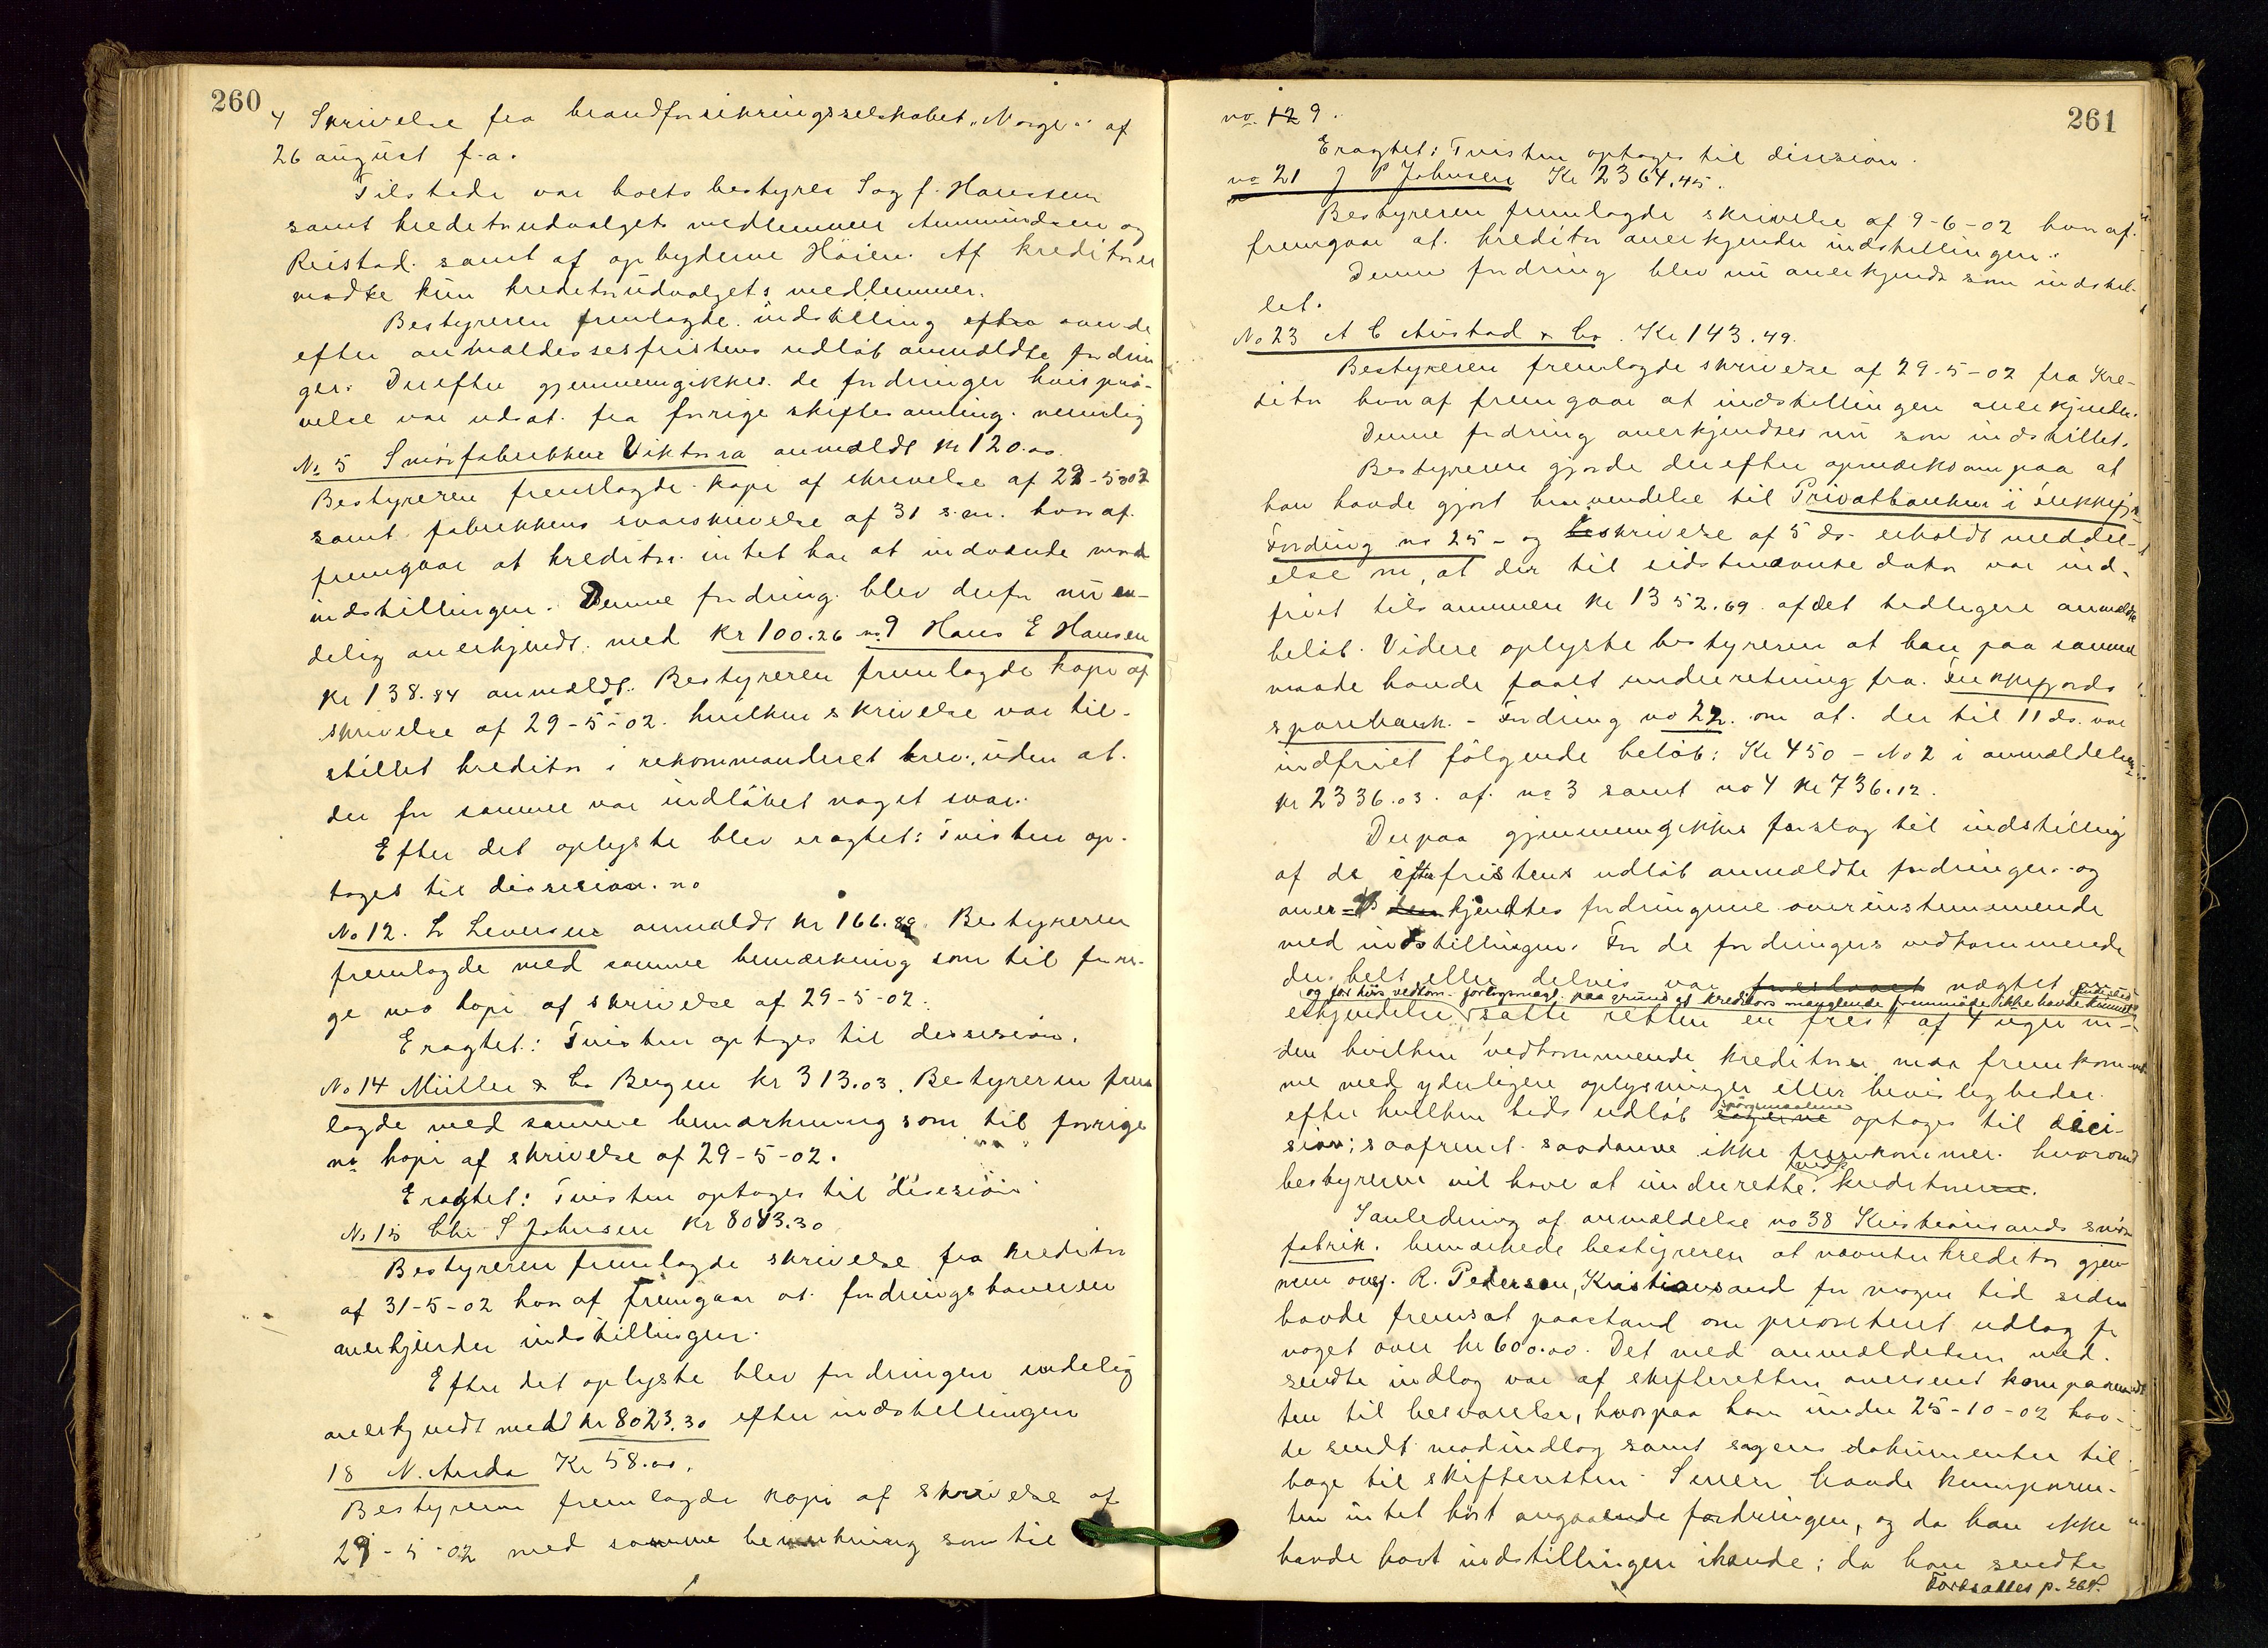 260
4 Skrivelse fra brandforsikringsselskabet „Norge“ af
26 august f.a.
Tilstede var boets bestyrer Sagf. Hanssen
samt kreditorudvalgets medlemmer Ammundsen og
Reistad samt af opbyderne Höien. Af kreditorer
mødte kun kreditorudvalgets medlemmer.
Bestyreren fremlagde indstilling efter over de
efter anmeldelsesfristens udløb anmeldte fordrin
ger. Derefter gjennemgikkes de fordringer hvis prø-
velse var udsat fra forrige skiftesamling nemlig
No 5 Smörfabrikken Viktoria anmeldt Kr 120.00.
Bestyreren fremlagde kopi af skrivelse af 29-5-02
samt fabrikkens svarskrivelse af 31 s.m. hvoraf
fremgaar at kreditor intet har at indvende mod
indstillingen. Denne fordring blev derfor nu en-
delig anerkjendt med Kr 100.26 no 9 Hans E Hansen
Kr 138.84 anmeldt. Bestyreren fremlagde kopi af
skrivelse af 29-5-02. hvilken skrivelse var til-
stillet kreditor i rekommanderet brev, uden at
der fra samme var indløbet noget svar.
Efter det oplyste blev eragtet: Tvisten op-
tages til dissision. no
No 12. L Leversen anmeldt Kr 166.89. Bestyreren
fremlagde med samme bemærkning som til forri-
ge no kopi af skrivelse af 29-5-02.
Eragtet: Tvisten optages til dissision.
No 14 Müller & Co Bergen Kr 313.03. Bestyreren frem
lagde med samme bemærkning som til forrige
no kopi af skrivelse af 29-5-02.
Eragtet: Tvisten optages til disision
No 15 Chr S Johnsen Kr 8043.30
Bestyreren fremlagde skrivelse fra kreditor
af 31-5-02 hvoraf fremgaar at fordringshaveren
anerkjender indstillingen.
Efter det oplyste blev fordringen endelig
anerkjendt med Kr 8023.30 efter indstillingen
18 N. Anda Kr 58.00.
Bestyreren fremlagde kopi af skrivelse af
29-5-02 med samme bemerkning som til
261
no 12 9.
Eragtet: Tvisten optages til disision.
no 21 J P Johnsen Kr 2364.45.
Bestyreren fremlagde skrivelse af 9-6-02 hvoraf
fremgaar at kreditor anerkjender indstillingen.
Denne fordring blev nu anerkjendt som indstil-
let.
No 23 A C Austad & Co. Kr 143.49.
Bestyreren fremlagde skrivelse af 29-5-02 fra Kre-
ditor hvoraf fremgaar at indstillingen anerkjendes.
Denne fordring anerkjendtes nu som indstillet.
Bestyreren gjorde derefter opmærksom paa at
han havde gjort henvendelse til Privatbanken i Flekkefj.
Fordring no 25 - og i skrivelse af 5 ds. erholdt meddel-
else om, at der til sidstnævnte dato var ind-
friet tilsammen Kr 1352.69 af det tidligere anmeldte
beløb. Videre oplyste bestyreren at han paa samme
maade havde faaet underretning fra Flekkefjords
sparebank - Fordring no 22. om at der til 11 ds. var
indfriet følgende beløb: Kr 450 - No 2 i anmeldelsen
Kr 2336.03. af no 3 samt no 4 Kr 736.12.
Derpaa gjennemgikkes forslag til indstilling
af de efter fristens udløb anmeldte fordringer og
aner-kjendtes fordringerne overensstemmende
med indstillingen. For de fordringers vedkommende
der helt eller delvis var nægtet an-
og for hvis vedkom. forligsmægl. paa grund af kreditors manglende fremmöde ikke havde kunnet
erkjendelse satte retten en frist af 4 uger in-
den hvilken vedkommende kreditorer maa fremkom-
me med yderligere oplysninger eller bevisligheder
efter hvilken tids udløb spörsmaalene
sagerne optages til deci-
sion; saafremt saadanne ikke fremkommer. hvorom
bestyreren vil have at underrette vedk. kreditorer.
I anledning af anmeldelse no 38 Kristiansands smör
fabrik. bemærkede bestyreren at nævnte kreditor gjen
nem overj. R. Pedersen, Kristiansand for nogen tid siden
havde fremsat paastand om prioriteret udlæg for
noget over Kr 600.00. Det med anmeldelsen med-
sendte indlæg var af skifteretten oversent komparen
ten til besvarelse, hvorpaa han under 25-10-02 hav-
de sendt modindlæg samt sagens dokumenter til-
bage til skifteretten. Senere havde komparen-
ten intet hört angaaende fordringen, og da han ikke
havde havt indstillingen ihænde; da han sendte
Fortsættes p. 264.